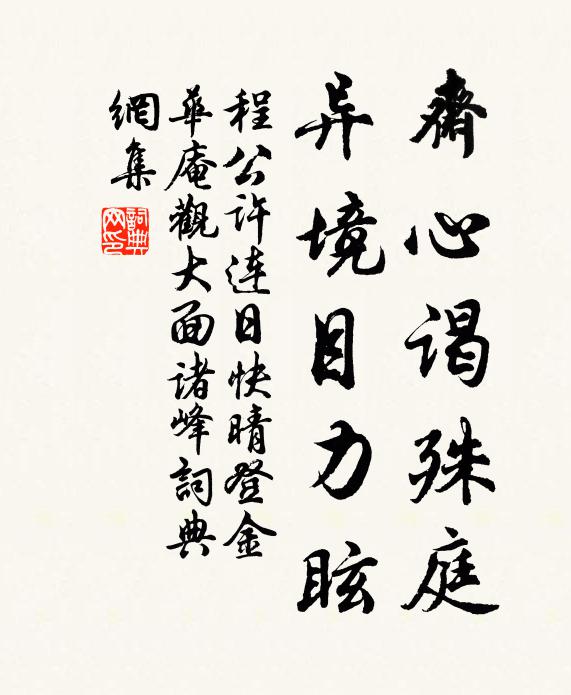 齋心谒殊庭
异境目力眩
程公许连日快晴登金
華庵觀大面诸峰詞典
網集
詞典网印